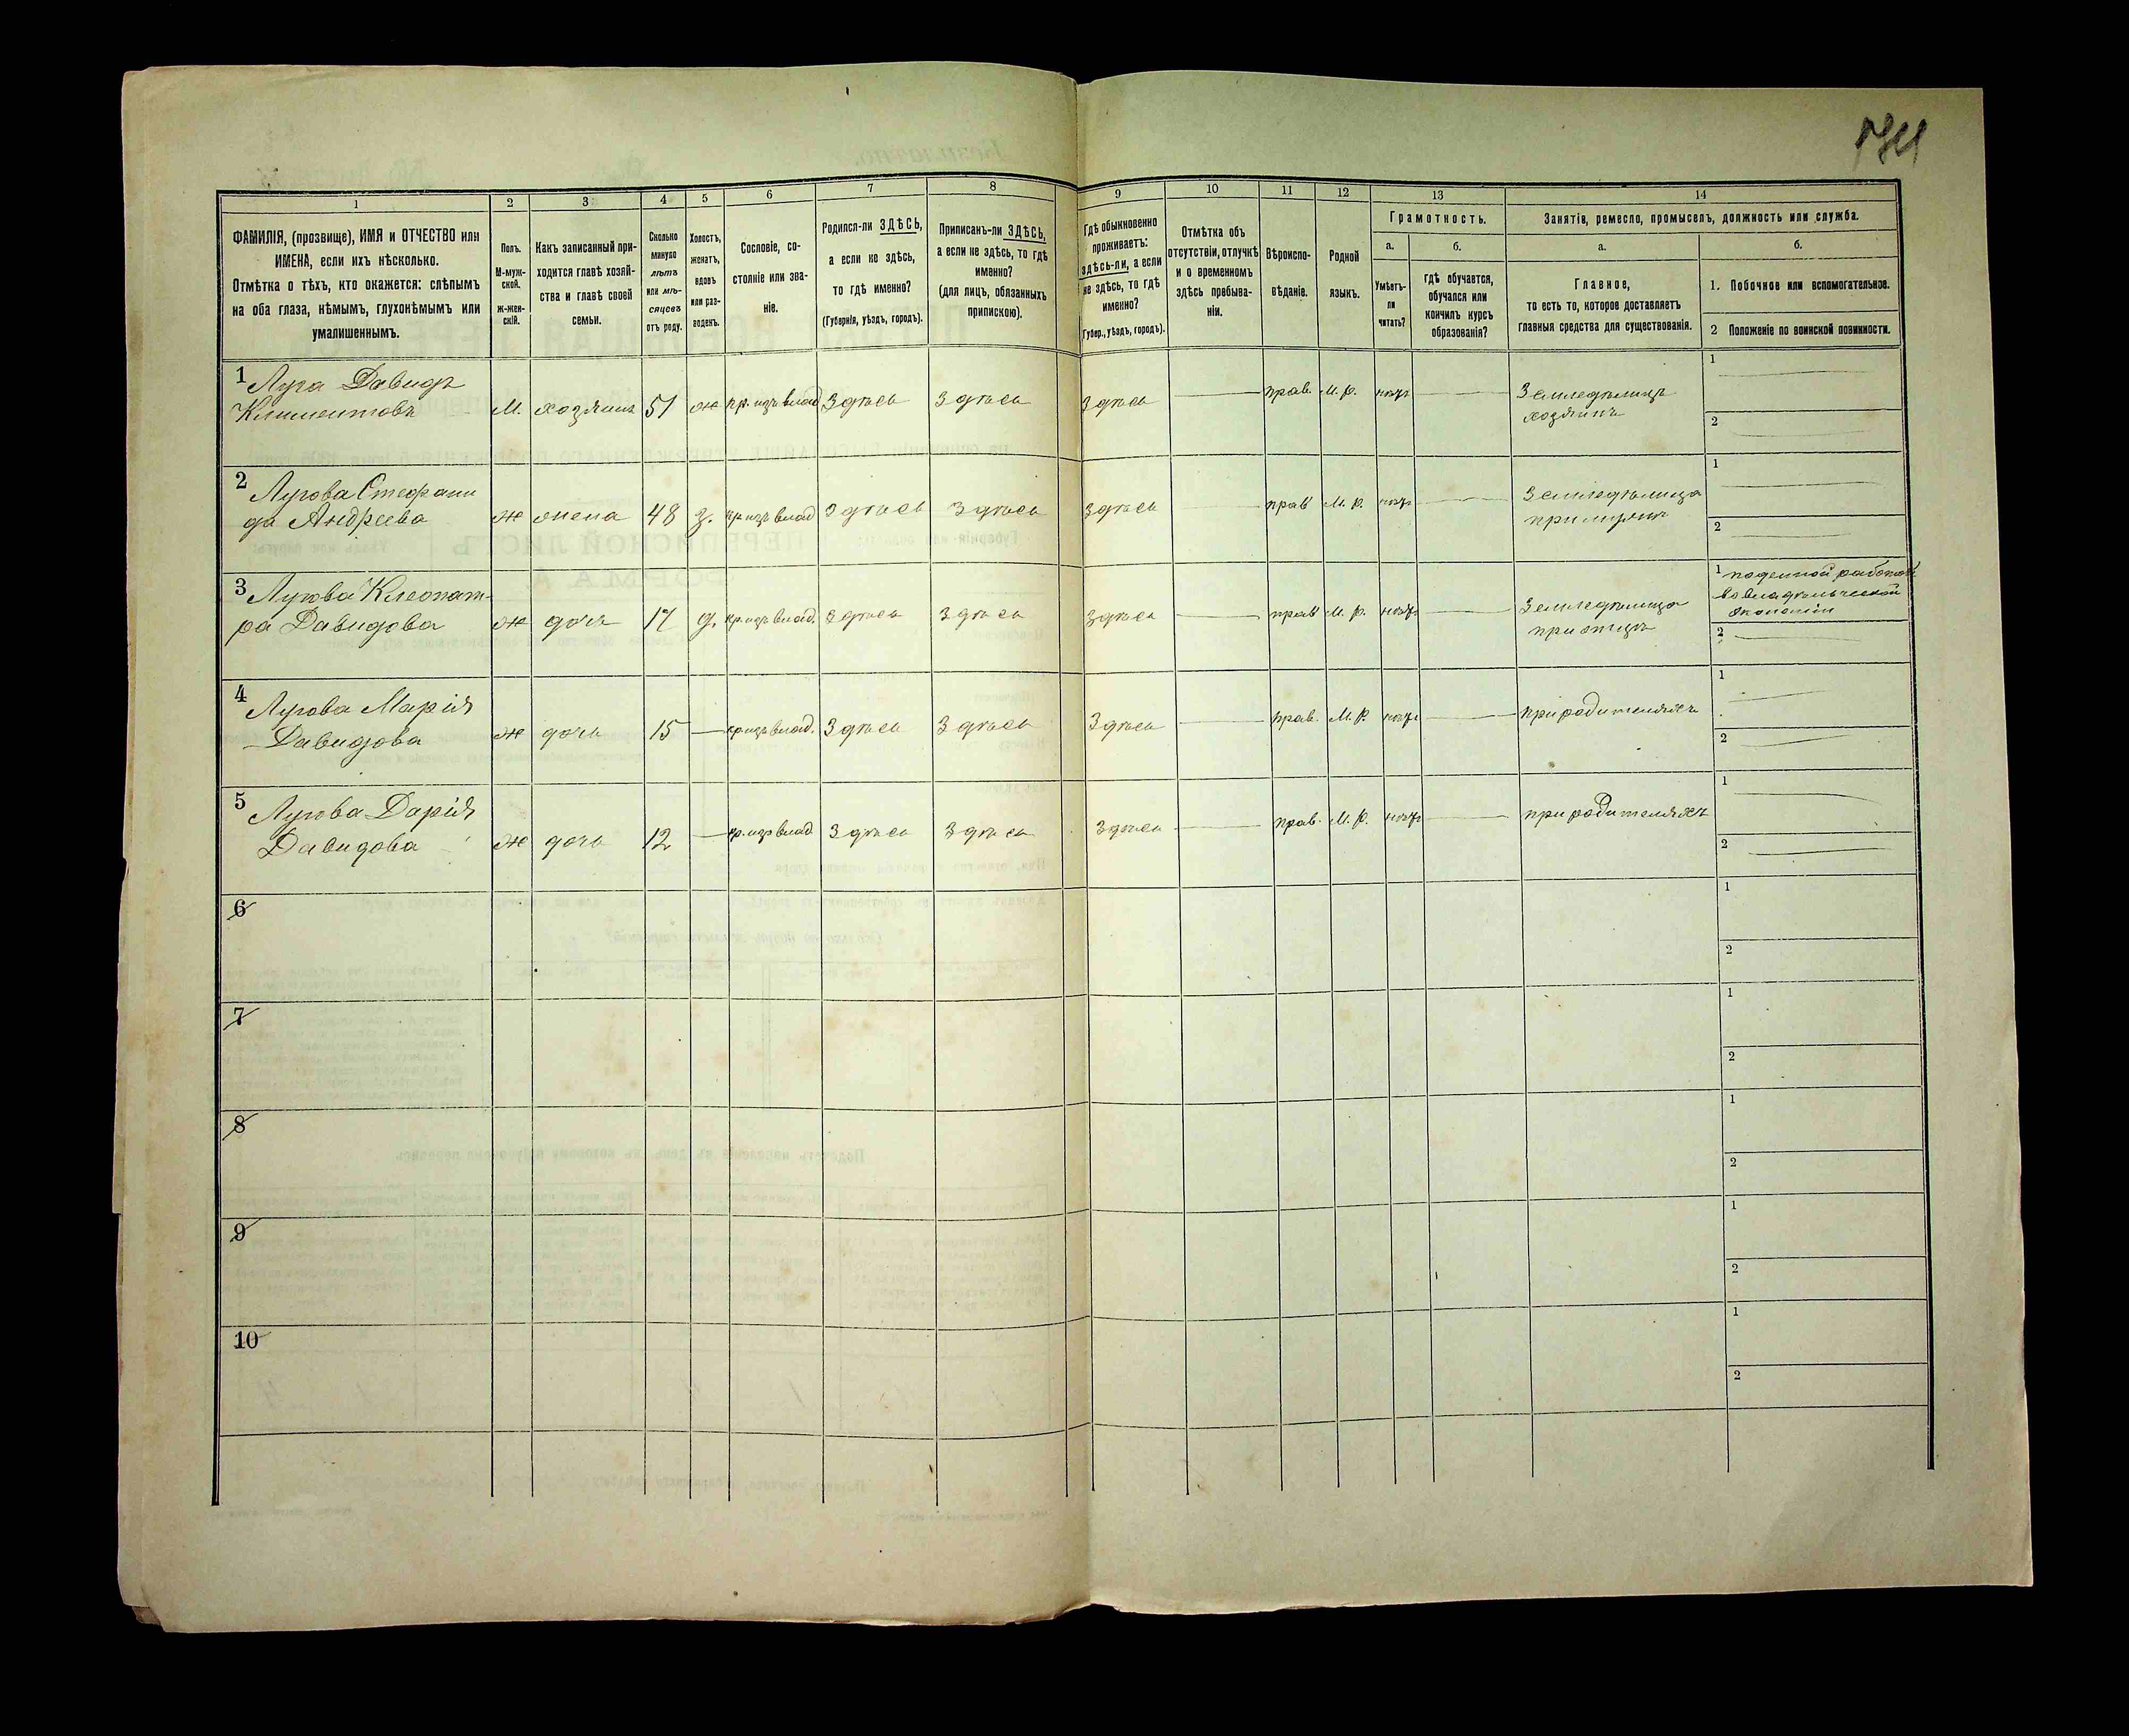 1 2 3 4 5 6 7 8 9 10 11 12 13 14
ФАМИЛІЯ, (прозвище), ИМЯ и ОТЧЕСТВО или
ИМЕНА, если ихъ нѣсколько.
Отмѣтка о тѣхъ, кто окажется: слѣпымъ
на оба глаза, нѣмымъ, глухонѣмымъ или
умалишеннымъ.
Полъ.
М-муж-
ской.
ж-жен-
скій.
Какъ записанный при-
ходится главѣ хозяй-
ства и главѣ своей
семьи.
Сколько
минуло
лѣтъ
или мѣ-
сяцевъ
отъ роду.
Холостъ,
женатъ,
вдовъ
или раз-
веденъ.
Сословіе, со-
стояніе или зва-
ніе.
Родился-ли ЗДѢСЬ,
а если не здѣсь,
то гдѣ именно?
(Губернія, уѣздъ, городъ).
Приписанъ-ли ЗДѢСЬ,
а если не здѣсь, то гдѣ
именно?
(для лицъ, обязанныхъ
припискою).
Гдѣ обыкновенно
проживаетъ:
здѣсь-ли, а если
не здѣсь, то гдѣ
именно?
(Губер., уѣздъ, городъ).
Отмѣтка объ
отсутствіи, отлучкѣ
и о временномъ
здѣсь пребыва-
ніи.
Вѣроиспо-
вѣданіе.
Родной
языкъ.
Грамотность.
а.
Умѣетъ-
ли
читать?
б.
гдѣ обучается,
обучался или
кончилъ курсъ
образованія?
Занятіе, ремесло, промыселъ, должность или служба.
а.
Главное,
то есть то, которое доставляетъ
главныя средства для существованія.
б.
1. Побочное или вспомогательное.
2 Положеніе по воинской повинности.
1 Луга Давидъ
Климентовъ М. хозяинъ 51 ж кр. изъ влад здѣсь здѣсь здѣсь прав. М. р. нѣтъ Земледѣлецъ
хозяинъ
1
2
2 Лугова Стефани
да Андреева ж жена 48 з. кр. изъ влад здѣсь здѣсь здѣсь прав М. р. нѣтъ Земледѣлица
при мужѣ
1
2
3 Лугова Клеопат-
ра Давидова ж дочь 17 д. кр. изъ влад. здѣсь здѣсь здѣсь прав М. р. нѣтъ Земледѣлица
при отцѣ
1 поденной работой
во владѣльческой
экономіи
2
4 Лугова Марія
Давидова ж дочь 15 кр. изъ влад. здѣсь здѣсь здѣсь прав. М. р. нѣтъ при родителяхъ
1
2
5 Лугова Дарія
Давидова ж дочь 12 кр. изъ влад здѣсь здѣсь здѣсь прав. М. р. нѣтъ при родителяхъ
1
2
6
1
2
7
1
2
8
1
2
9
1
2
10
1
2